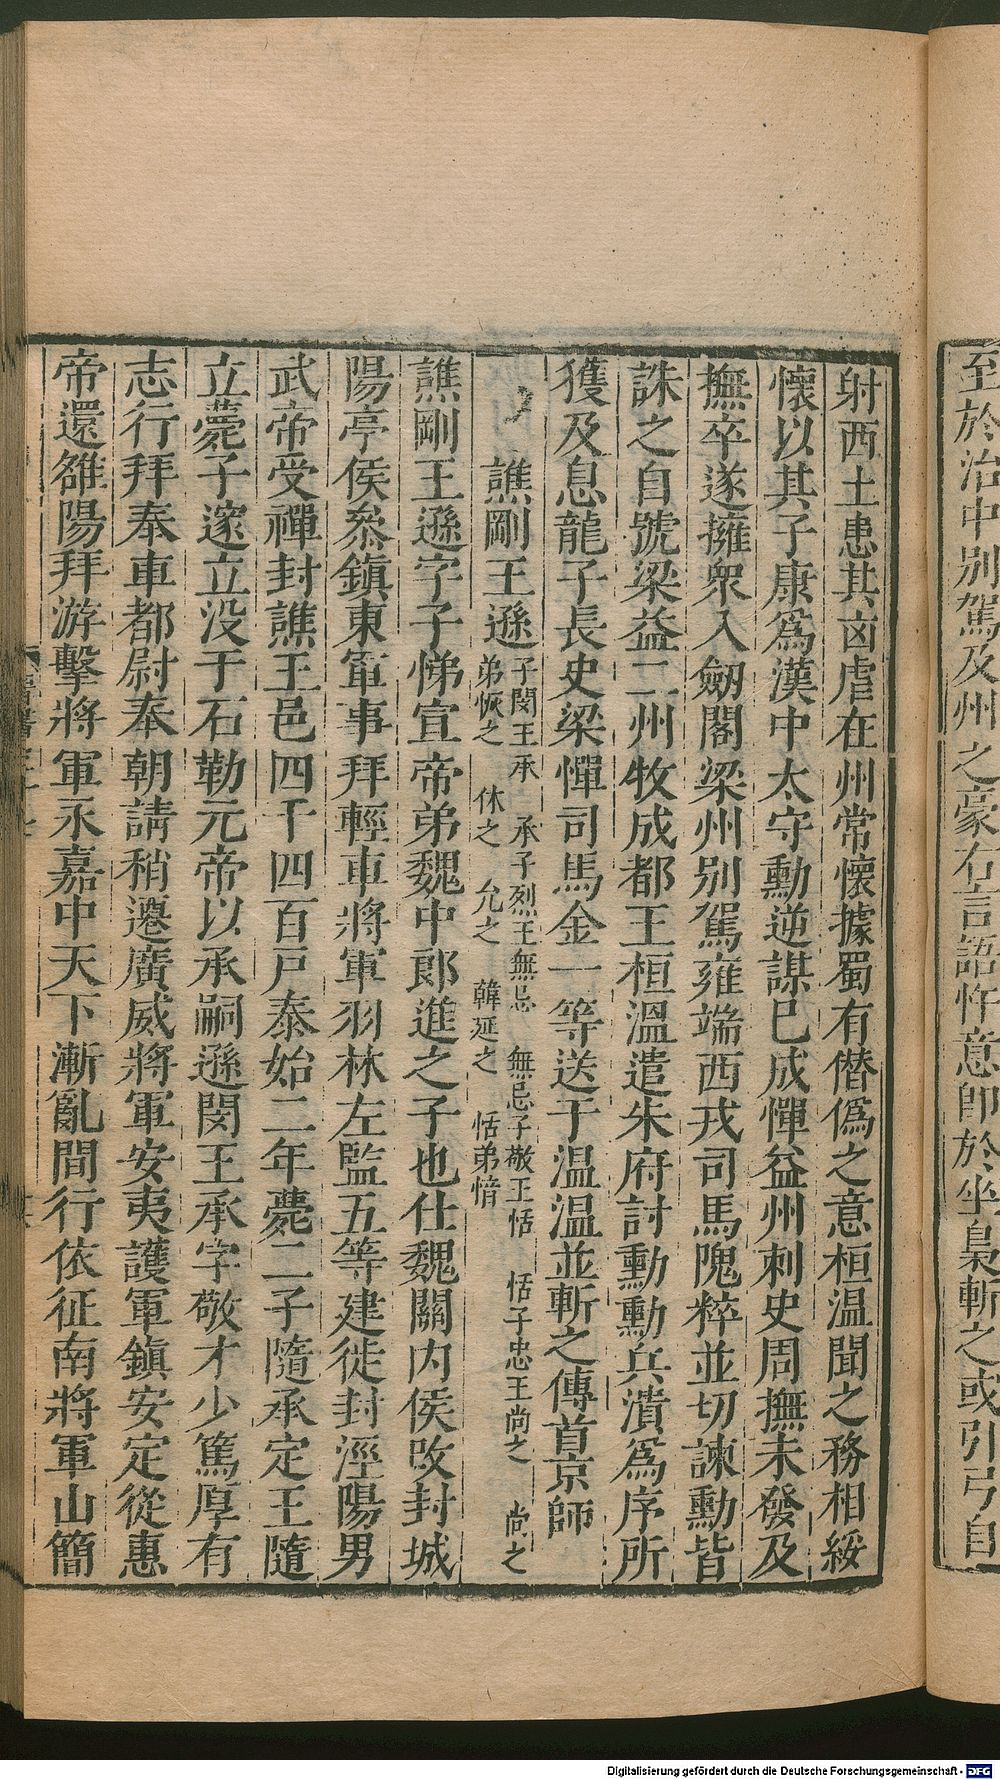 至於治中別駕及州之豪右言語忤意即於坐梟斬之或引弓自
射西土患其凶虐在州常懷據蜀有僭僞之意桓温聞之務相綏
懷以其子康爲漢中太守勳逆謀已成憚益州刺史周撫未發及
撫卒遂擁衆入劒閣梁州別駕雍端西戎司馬隗粹並切諫勳皆
誅之自號梁益二州牧成都王桓溫遣朱府討勳勳兵潰爲序所
獲及息龍子長史梁憚司馬金一等送于温温並斬之傳首京師
譙剛王遜 子閔王承 承子烈王無忌 無忌子敬王恬 恬子忠王尚之 尚之
弟恢之 休之 允之 韓延之 恬弟愔
譙剛王遜字子悌宣帝弟魏中郎進之子也仕魏關内侯改封城
陽亭侯叅鎭東軍事拜輕車將軍羽林左監五等建徙封涇陽男
武帝受禪封譙王邑四千四百戸泰始二年薨二子隨承定王隨
立薨子邃立没于石勒元帝以承嗣遜閔王承字敬才少篤厚有
志行拜奉車都尉奉朝請稍遷廣威將軍安夷護軍鎭安定從惠
帝還雒陽拜游擊將軍永嘉中天下漸亂間行依征南將軍山簡
Digitalisierung gefördert durch die Deutsche Forschungsgemeinschaft - DFG